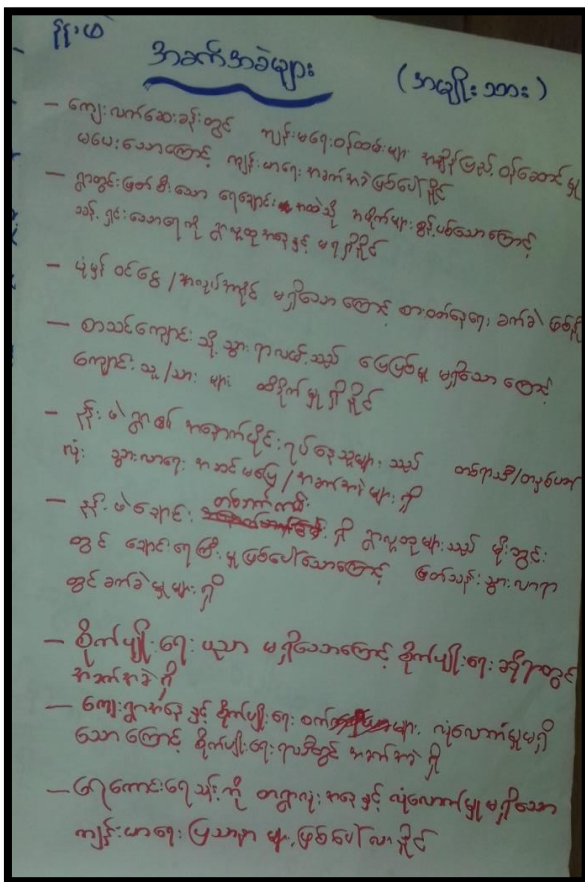 နန်းမဲ
အခက်အခဲများ (အမျိုးသား)
- ကျေးလက်ဆေးခန်းတွင် ကျန်းမာရေးဝန်ထမ်းများ အချိန်ပြည့် ဝန်ဆောင်မှု
မပေးသောကြောင့် ကျန်းမာရေး အခက်အခဲ ဖြစ်ပေါ်နိုင်
- ရွာတွင်းဖြတ်စီးသော ရေချောင်း အထဲသို့ အမှိုက်များ စွန့်ပစ်သောကြောင့်
သန့်ရှင်းသောရေကို ရွာသူရွာသားအနေနှင့် မရရှိနိုင်
- ပုံမှန် ဝင်ငွေ / အလုပ်အကိုင် မရှိသောကြောင့် စားဝတ်နေရေး ခက်ခဲ
- စာသင်ကျောင်း သို့ သွားရာလမ်းသည် ပြေပြစ်မှု မရှိသောကြောင့်
ကျောင်းသူ/သား များ ထိခိုက်မှု ရှိနိုင်
- နန်းမဲရွာ၏ အနောက်ပိုင်း ရပ်နေသူများသည် တစ်ရာသီ/တနှစ်ပတ်
လုံး သွားလာရေး အဆင်မပြေ / အခက်အခဲများ ရှိ
- နန်းမဲချောင်း တစ်ဘက်ကမ်း ရှိ ရွာလူထုများသည် မိုးတွင်း
တွင် ချောင်းရေကြီးမှု ဖြစ်ပေါ်သောကြောင့် ဖြတ်သန်းသွားလာရာ
တွင် ခက်ခဲမှုများ ရှိ
- စိုက်ပျိုးရေး ပညာ မရှိသောကြောင့် စိုက်ပျိုးရေး ဆိုရာတွင်
အခက်အခဲ ရှိ
- ကျေးရွာအနေနှင့် စိုက်ပျိုးရေး စက်များ လုံလောက်မှုမရှိ
သောကြောင့် စိုက်ပျိုးရေးရာသီတွင် အခက်အခဲ ရှိ
- ရေကောင်းရေသန့် ကို တရွာလုံးအနေနှင့် လုံလောက်မှု မရှိသော
ကျန်းမာရေး ပြဿနာ များ ဖြစ်ပေါ်လာနိုင်